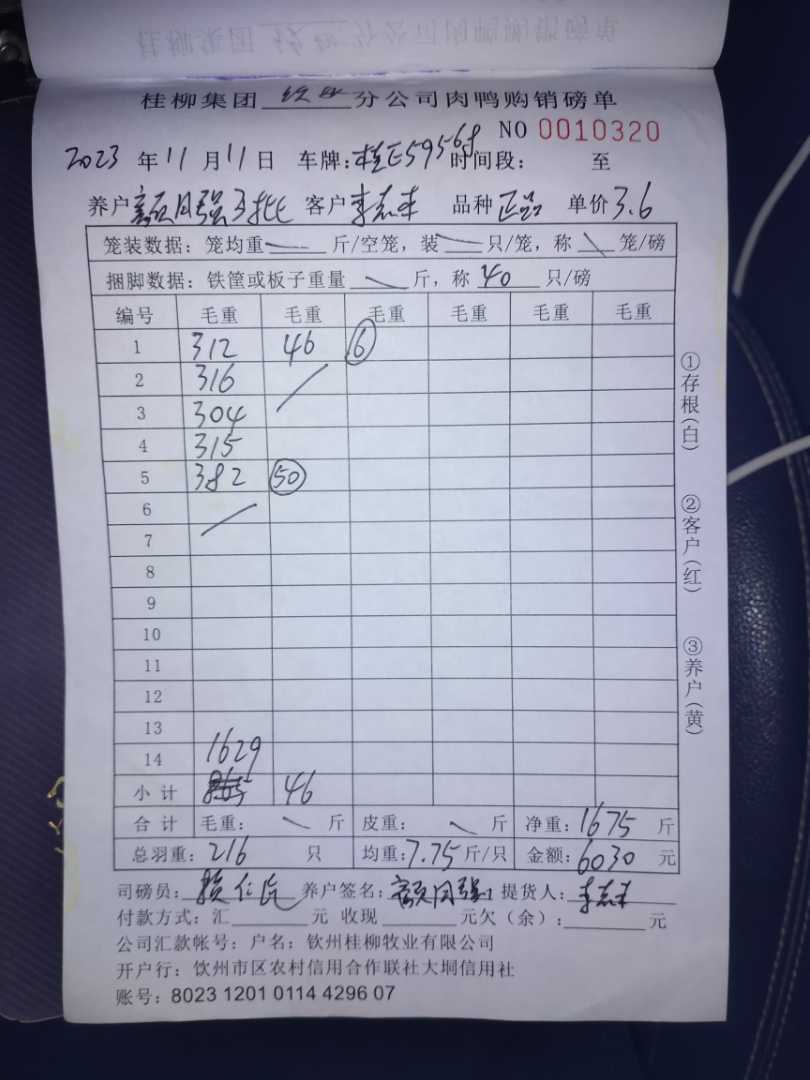 桂柳集团 钦州 分公司肉鸭购销磅单
NO 0010320
2023 年 11 月 11 日 车牌: 桂E59568 时间段: 至
养户 国强 批 客户 李志 品种 正品 单价 3.6
笼装数据: 笼均重 斤/空笼, 装 只/笼, 称 笼/磅
捆脚数据: 铁筐或板子重量 斤, 称 40 只/磅
编号 毛重 毛重 毛重 毛重 毛重 毛重
1 312 46 6
2 316
3 304
4 315
5 382 50
6
7
8
9
10
11
12
13
14 1629
小计 46
合计 毛重: 斤 皮重: 斤 净重: 1675 斤
总羽重: 216 只 均重: 7.75 斤/只 金额: 6030 元
司磅员: 养户签名: 国强 提货人: 李志
付款方式: 汇 元 收现 元欠(余): 元
公司汇款帐号: 户名: 钦州桂柳牧业有限公司
开户行: 饮州市区农村信用合作联社大垌信用社
账号: 8023 1201 0114 4296 07
①存根(白)
②客户(红)
③养户(黄)